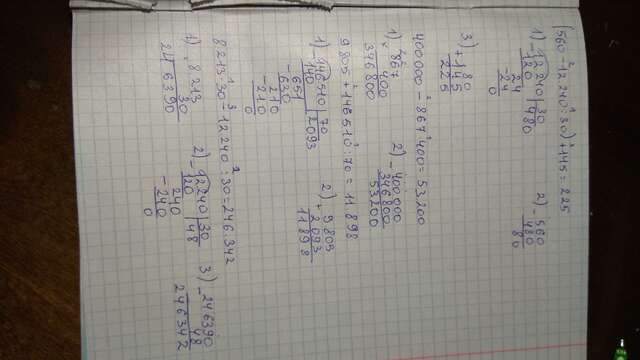 (560-12240:30)+145=225
1) -12240 | 30
120 | 480
24
-24
0
2) -560
480
80
3) +80
145
225
400000-867·400=53200
1) ×867
400
346800
2) -400000
346800
53200
9805+146510:70=11898
1) -146510 | 70
140 | 2093
-651
630
-210
-210
0
2) +9805
2093
11898
8213·30-12240:30=246.342
1) ×8213
30
246390
2) -12240 | 30
120 | 48
240
-240
0
3) -246390
48
246342